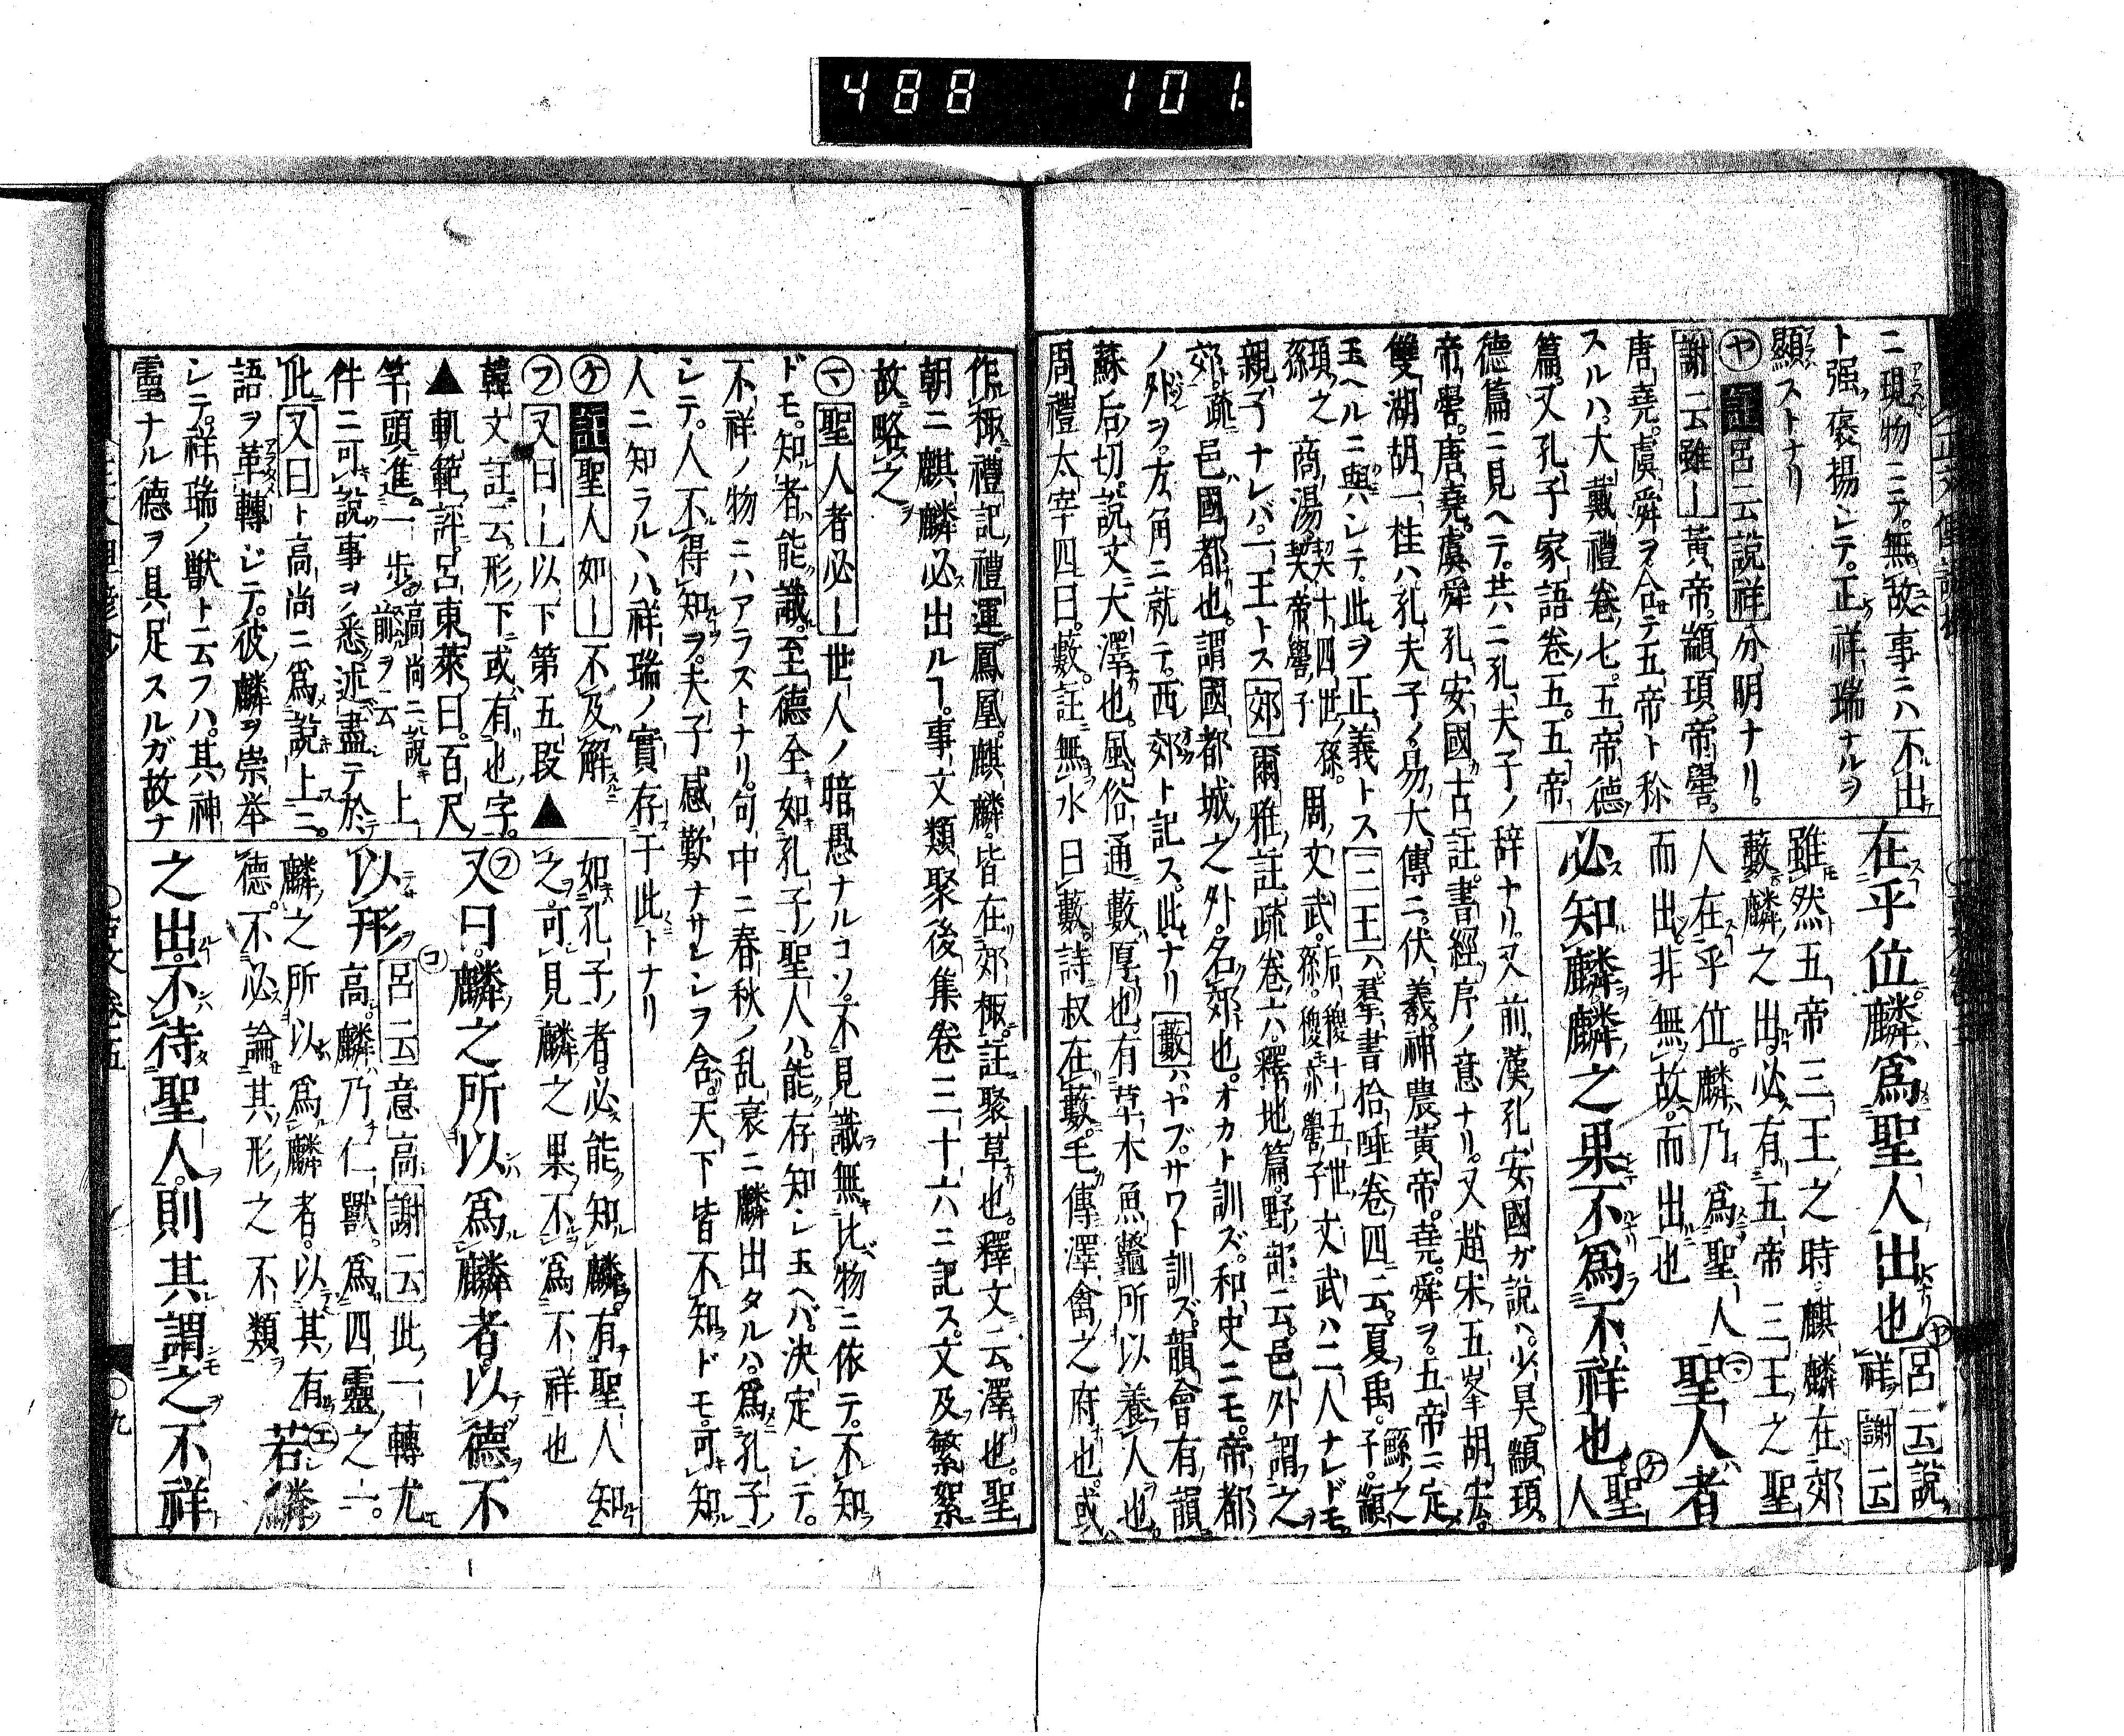 488 101.
ニ現物ニテ。無故事ニハ不出
ト强褒揚シテ。正祥瑞ナルヲ
顯ストナリ
ヤ 註 呂云說祥 分明ナリ。
謝云雖ー 黃帝。顓頊。帝嚳。
唐堯。虞舜ヲ合テ五帝ト称
スルハ。大戴禮卷七。五帝德
篇。又孔子家語卷五。五帝
德篇ニ見ヘテ。共ニ孔夫子ノ辞ナリ。又前漢孔安國ガ說ヘ。少昊。顓頊。
帝嚳。唐堯。虞舜孔安國古註。書經序ノ意ナリ。又趙宋五峯胡宏。
雙湖胡一桂ハ。孔夫子ノ易大傳ニ。伏羲。神農。黃帝。堯。舜ヲ。五帝ニ定
玉ヘルニ興シテ。此ヲ正義トス 三王 ハ。羣書拾唾卷四ニ云。夏禹。鯀之子。顓
頊之孫 商湯。契十四世孫。契帝嚳子 周文武。后稷十五世孫。稷亦嚳子 文武ハ二人ナレドモ。
親子ナレバ。一王トス 郊 爾雅註疏卷六。釋地篇。野部ニ云。邑外謂之
郊。疏 邑國都也。謂國都城之外。名郊也。オカト訓ズ。和史ニモ。帝都
ノ外ヲ。方角ニ就テ。西郊ト記ス。此ナリ 藪 ハ。ヤブ。サワト訓ズ。韻會有韻
蘇后切。說文大澤也。風俗通藪厚也。有草木魚鼈所以養人也。
周禮太宰四曰。藪。註無水曰藪。詩叔在藪。毛傳澤禽之府也。或
在乎位麟爲聖人出也 ヤ 呂云說祥 謝云
雖然五帝三王之時。麒麟在郊
藪麟之出。必有五帝三王之聖
人在乎位。麟乃爲聖人
而出。非無故。而出也 マ 聖人者
必知麟麟之果不爲不祥也 ケ 聖人
作棷。禮記禮運。鳳凰。麒麟。皆在郊棷。註聚草也。釋文云。澤也。聖
朝ニ麒麟必出ルヿ。事文類聚後集卷三十六ニ記ス。文及繁絮
故略之
マ 聖人者必ー 世人ノ暗愚ナルコソ。不見識無比物ニ依テ。不知
ドモ。知者能識。至德全如孔子聖人ハ。能存知シ玉ヘバ。決定シテ。
不祥ノ物ニハアラストナリ。句中ニ春秋ノ乱衰ニ麟出タルハ。爲孔子
シテ。人不得知ヲ。夫子感歎ナサレシヲ含。天下皆不知ドモ。可知
人ニ知ラルヽハ。祥瑞ノ實存于此トナリ
ケ 註 聖人如ー 不及解
フ 又曰ー 以下第五段▲
韓文註云。形下或有也字。
▲軌範評。呂東萊曰。百尺
竿頭進一歩。高尚ニ說上
件ニ可說事ヲ。悉述盡テ於
此 又曰 ト高尚ニ爲說上ニ。
語ヲ革轉ジテ。彼麟ヲ崇举
シテ。祥瑞ノ獸ト云フハ。其神
靈ナル德ヲ具足スルガ故ナ
如孔子者。必能知麟。有聖人知
之。可見麟之果不爲不祥也
フ 又曰。麟之所以爲麟者。以德不
以形 コ 呂云 意高 謝云 此一轉尤
高。麟乃仁獸。爲四靈之一。
麟之所以爲麟者。以其有
德。不必論其形之不類 エ 若麟
之出。不待聖人。則其謂之不祥
〇九